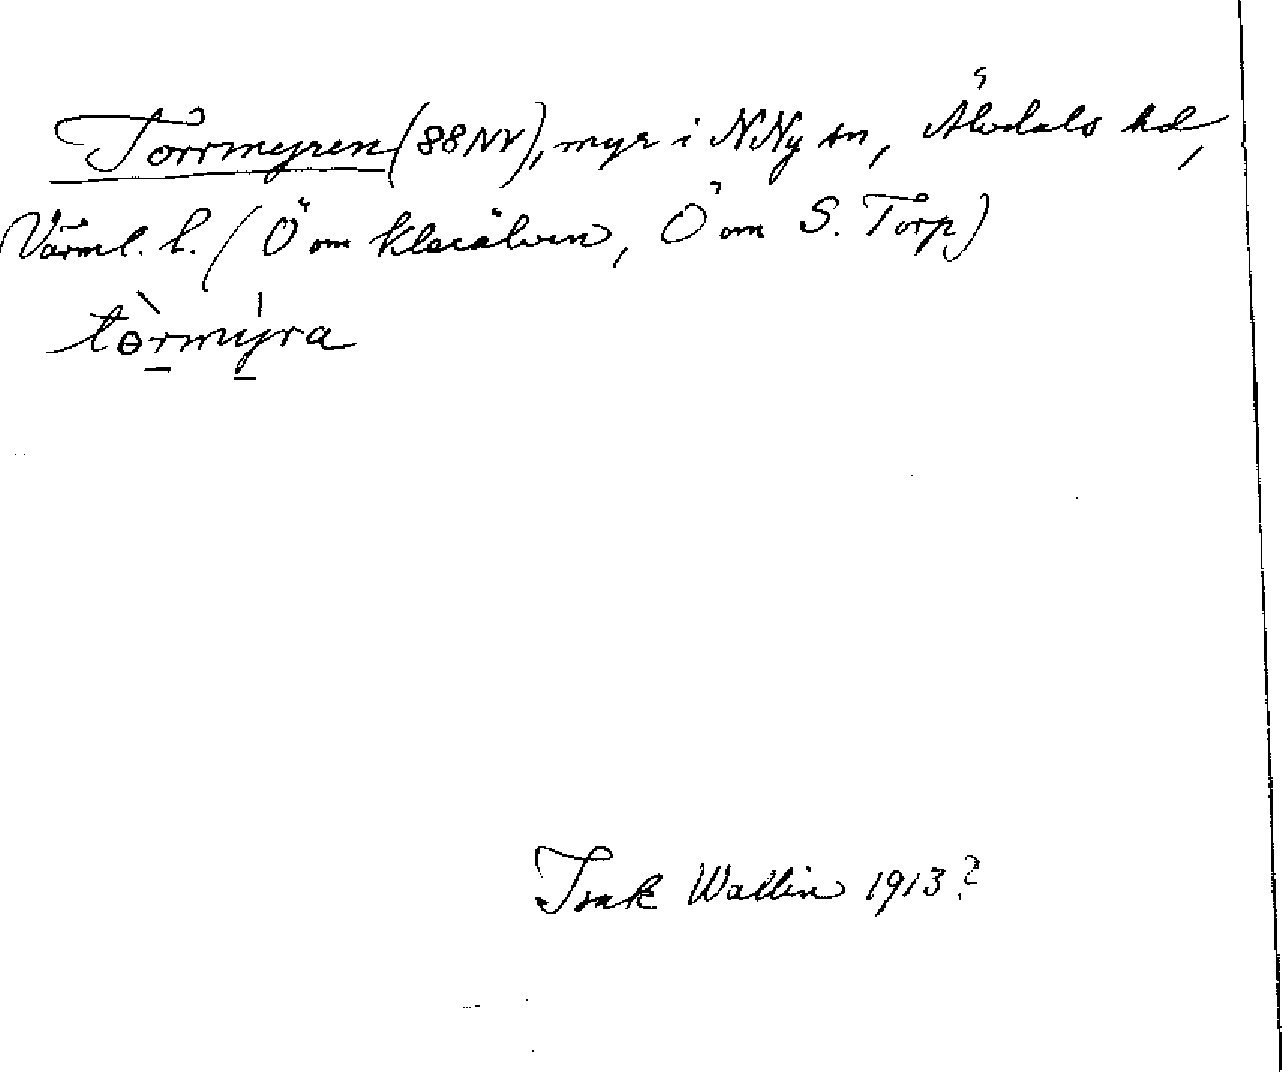 Torrmyren (88NV), myr i N Ny sn, Älvdals hd,
Värml. l. (Ö om Klarälven, Ö om S. Torp)
tɵ̀rmýra
Isak Wallin 1913?